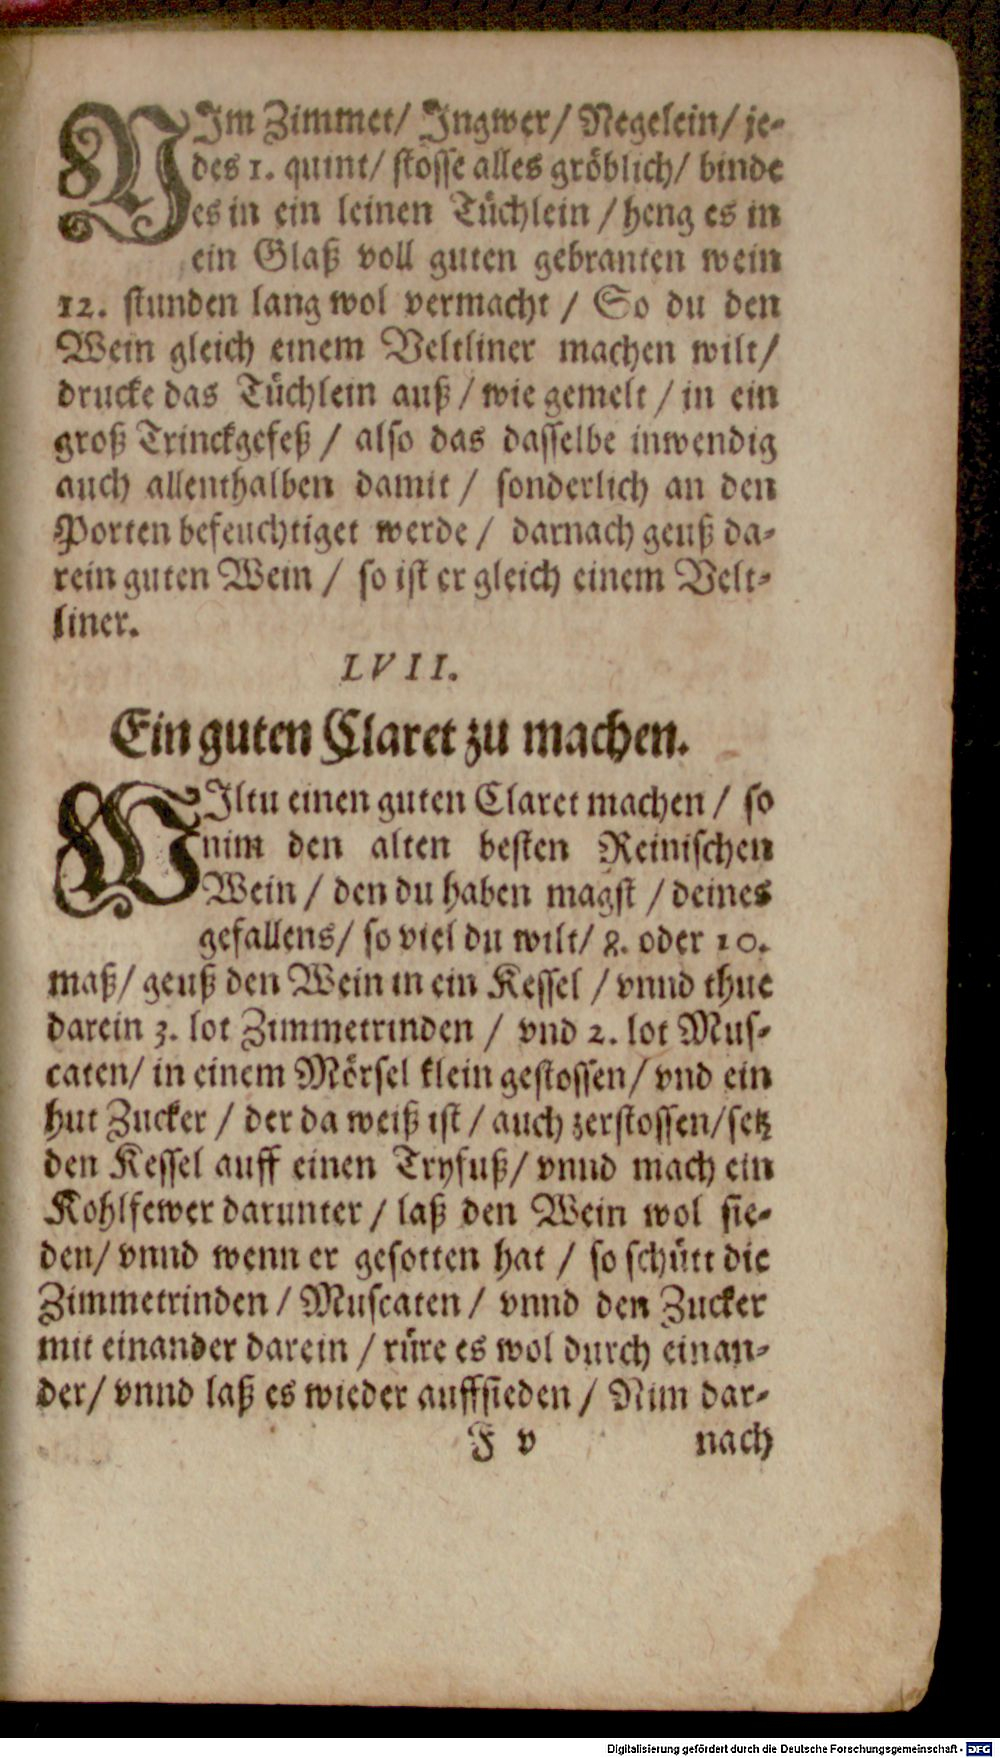 NIm Zimmet/ Ingwer/ Negelein/ je-
des 1. quint/ stosse alles gröblich/ binde
es in ein leinen Tüchlein / heng es in
ein Glaß voll guten gebranten wein
12. stunden lang wol vermacht / So du den
Wein gleich einem Veltliner machen wilt/
drucke das Tüchlein auß / wie gemelt / in ein
groß Trinckgefeß / also das dasselbe inwendig
auch allenthalben damit / sonderlich an den
Porten befeuchtiget werde / darnach geuß da-
rein guten Wein / so ist er gleich einem Velt-
liner.
LVII.
Ein guten Claret zu machen.
WIltu einen guten Claret machen / so
nim den alten besten Reinischen
Wein / den du haben magst / deines
gefallens/ so viel du wilt/ 8. oder 10.
maß/ geuß den Wein in ein Kessel / vnnd thue
darein 3. lot Zimmetrinden / vnd 2. lot Mus-
caten/ in einem Mörsel klein gestossen/ vnd ein
hut Zucker / der da weiß ist / auch zerstossen/setz
den Kessel auff einen Tryfuß/ vnnd mach ein
Kohlfewer darunter / laß den Wein wol sie-
den/ vnnd wenn er gesotten hat / so schütt die
Zimmetrinden / Muscaten / vnnd den Zucker
mit einander darein / rüre es wol durch einan-
der/ vnnd laß es wieder auffsieden / Nim dar-
F v nach
Digitalisierung gefördert durch die Deutsche Forschungsgemeinschaft - DFG